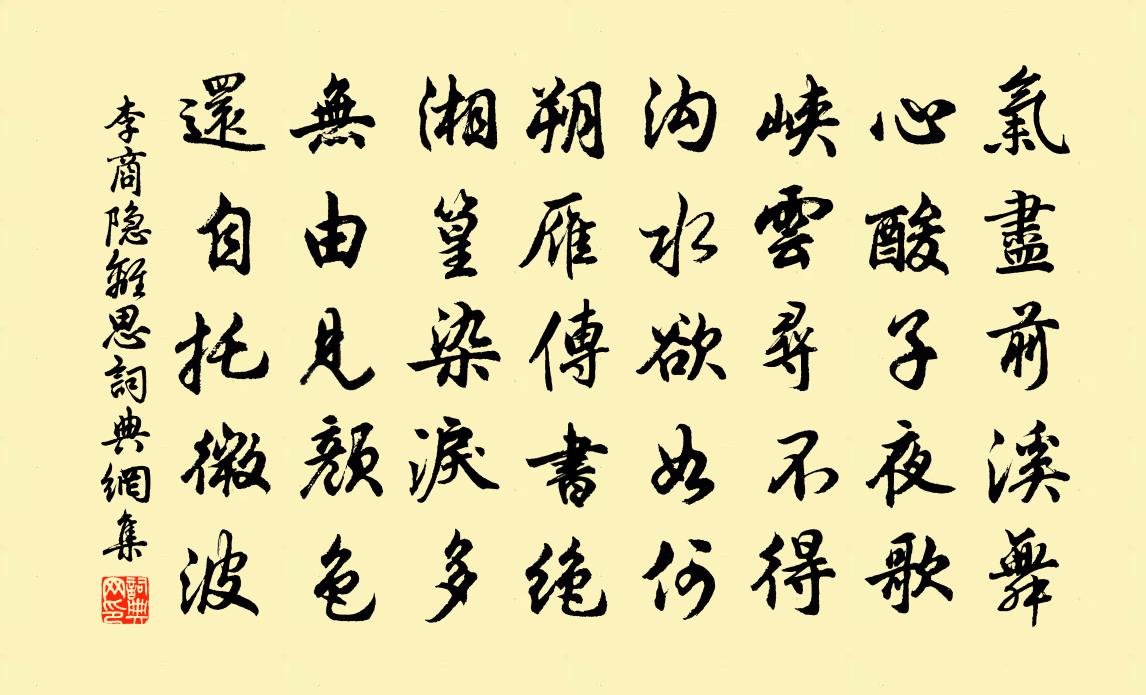 氣盡前溪舞
心酸子夜歌
峽雲尋不得
沟水欲如何
朔雁傳書絶
湘篁染淚多
無由見顔色
還自托微波
李商隐離思詞典網集
詞典网印